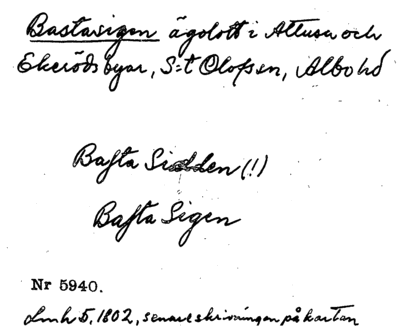 Bastasigen ägolott i Attusa och
Ekerödsbyar, S:t Olofs sn, Albo hd
Basta Sidden (!)
Basta Sigen
Nr 5940.
Lmh 5, 1802, senare skrivningen på kartan